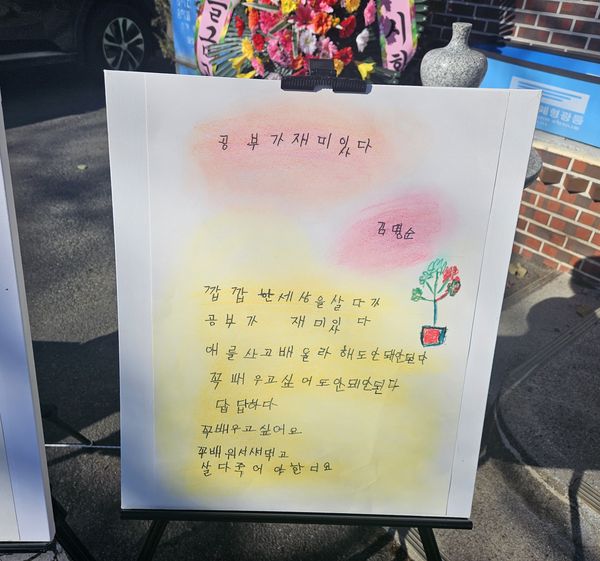 공부가재미있다
김명순
깝깝한세상을살다가
공부가 재미있다
애를사고배울라해도안돼안된다
꼭배우고싶어도안돼안된다
답답하다
꼭배우고싶어요
꼭배워서새먹고
살다죽어야한디요